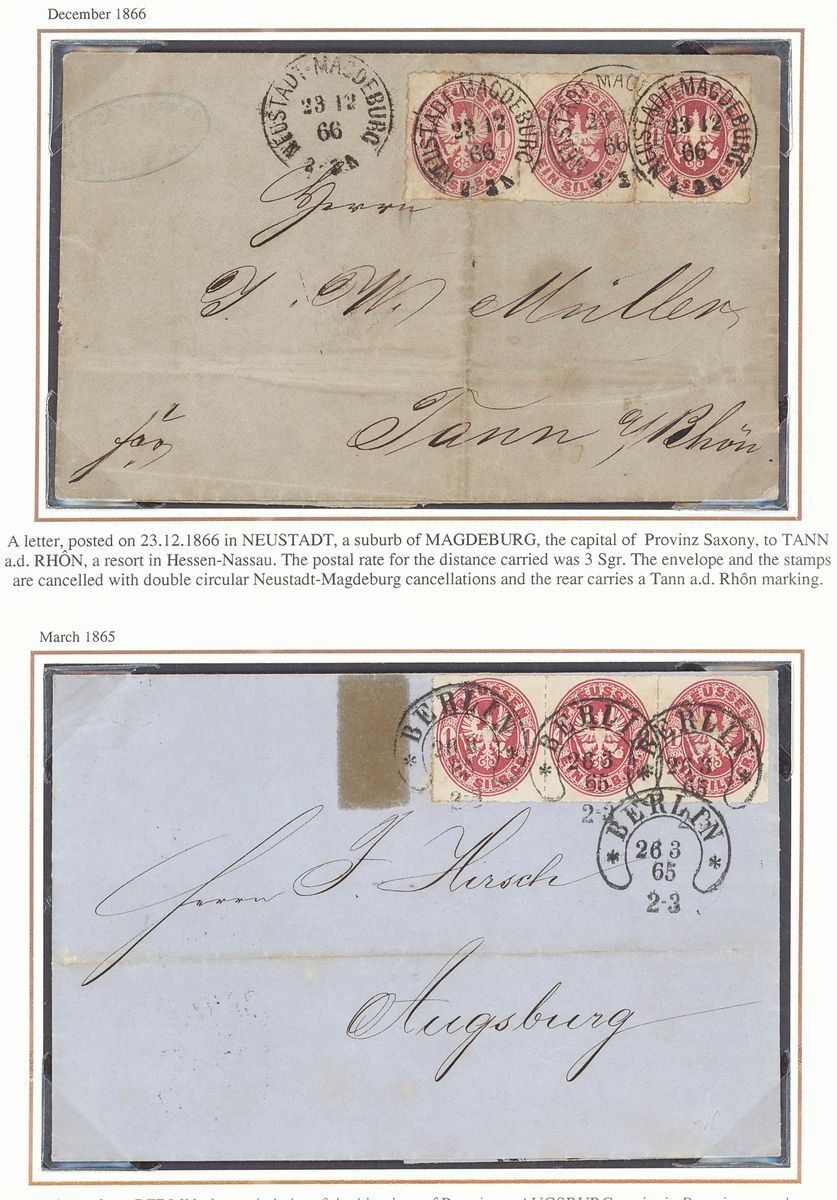 December 1866
NEUSTADT-MAGDEBURG
23 12
66
2-3N
NEUSTADT-MAGDEBURG
23 12
66
2-3N
NEUSTADT MAGD
66
NEUSTADT-MAGDEBURG
23 12
66
2-3N
EIN SILBERGR.
Herrn
J. W. Müller
Tann a/Rhön.
A letter, posted on 23.12.1866 in NEUSTADT, a suburb of MAGDEBURG, the capital of Provinz Saxony, to TANN
a.d. RHÔN, a resort in Hessen-Nassau. The postal rate for the distance carried was 3 Sgr. The envelope and the stamps
are cancelled with double circular Neustadt-Magdeburg cancellations and the rear carries a Tann a.d. Rhôn marking.
March 1865
BERLIN
26 3
2-3
BERLIN
26 3
65
2-3
BERLIN
26 3
65
BERLIN
26 3
65
2-3
Herrn F. Hirsch
Augsburg